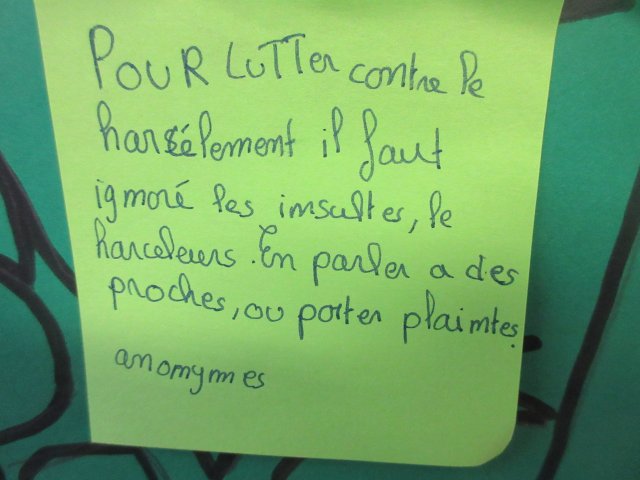 POUR LUTTer contre le
harcélement il faut
ignoré les insultes, le
harceleurs. En parler a des
proches, ou porter plaintes.
anonymmes